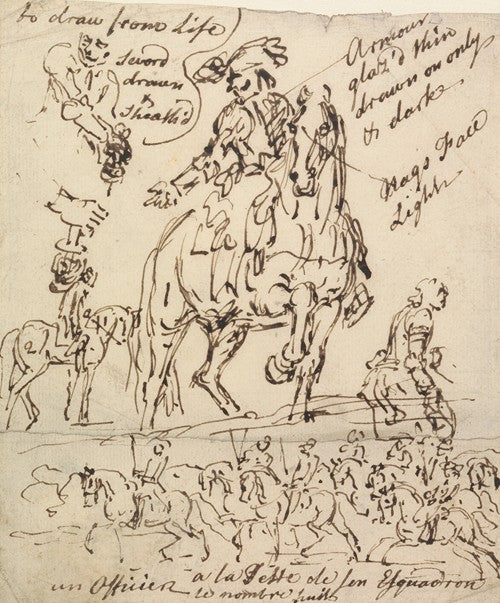 to draw from Life
Sword
drawn
&
Sheath'd
Armour
glaz'd thin
drawn on only
& dark
Nags Face
Light
un Officier a la Teste de son Esquadron
le nombre huit